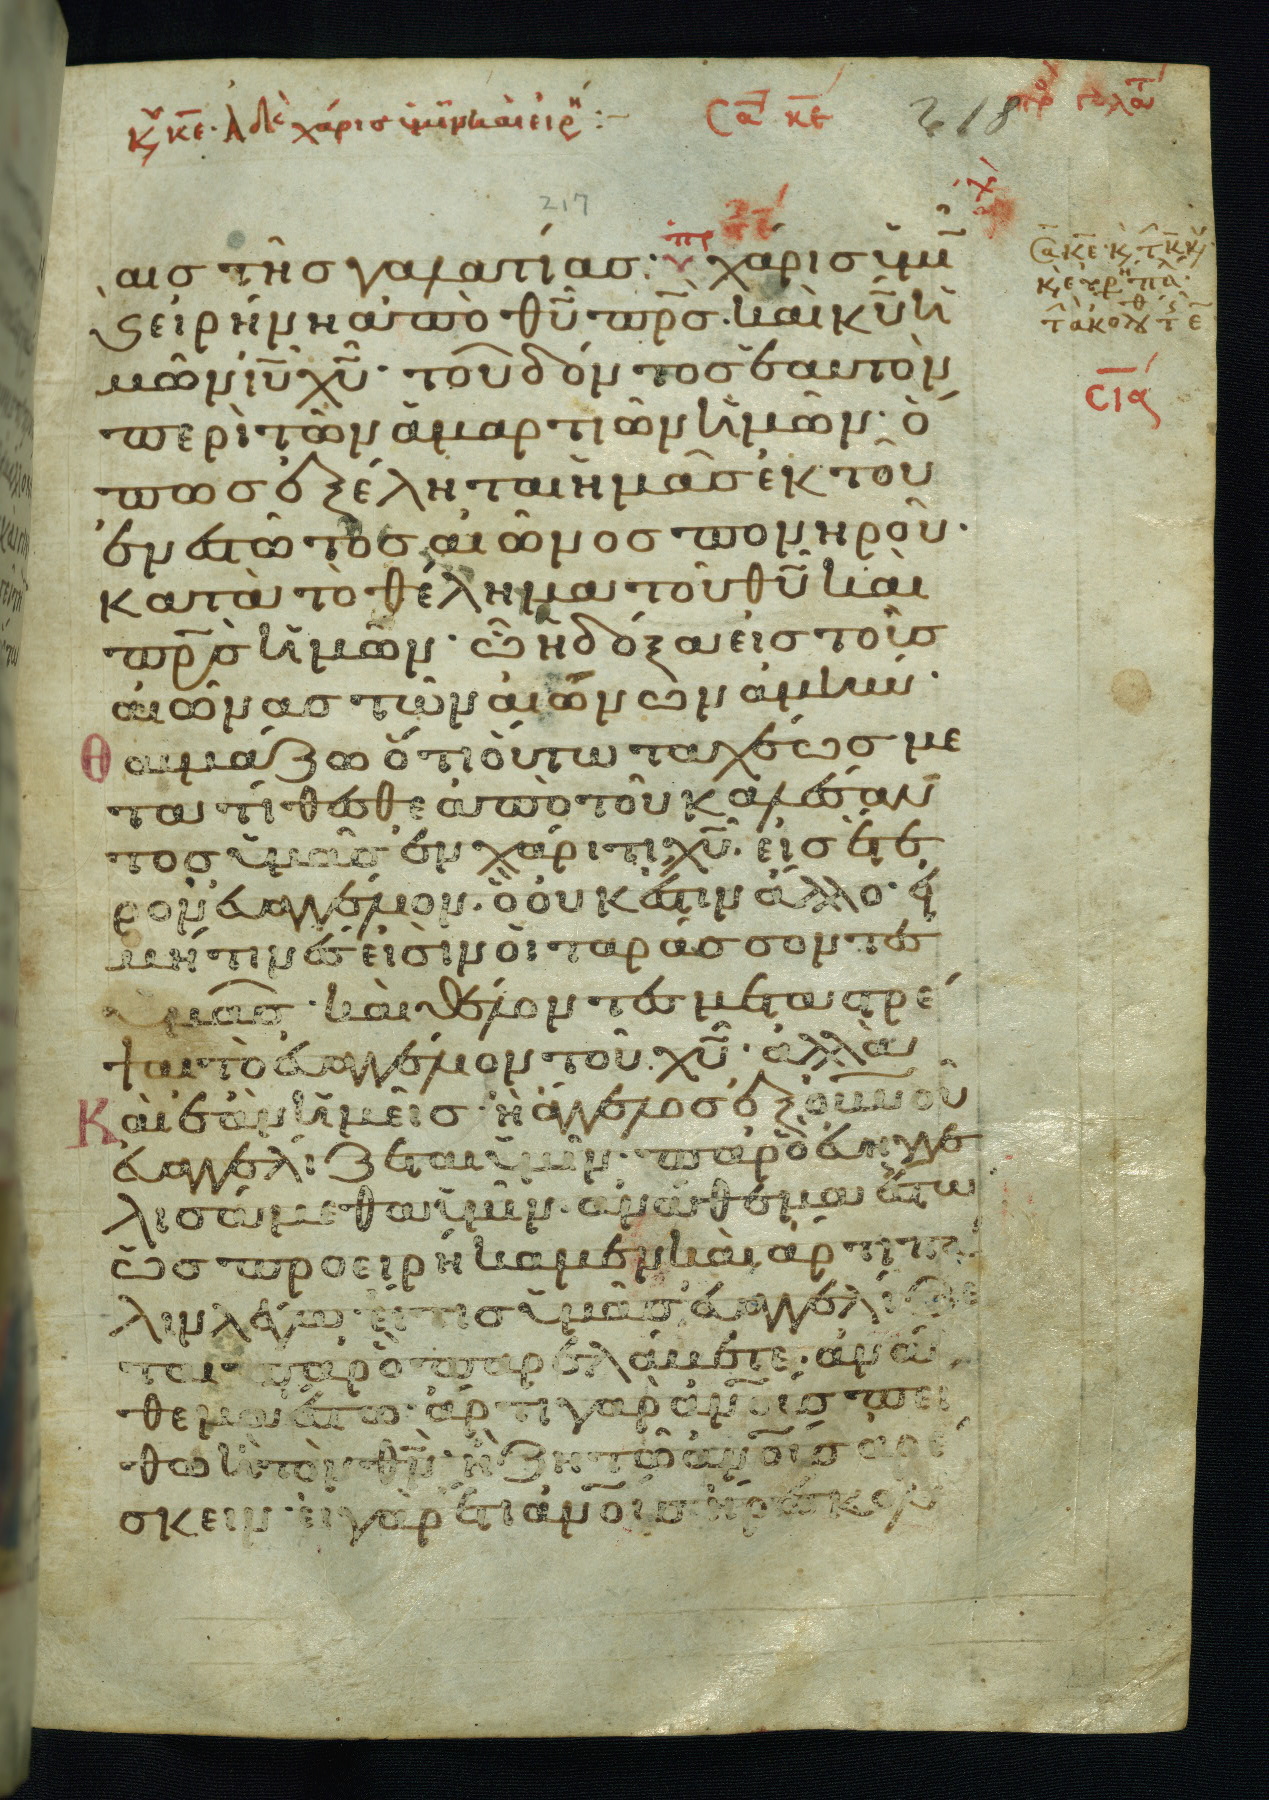 Κυ κε. ἀδε χάρις ὑμῖν καὶ εἰρη :~
Σα κε
218
πρ γαλατ
217
αις τῆς γαλατίας· χάρις ὑμῖ
ϛ εἰρήνη ἀπὸ θῦ πρς. καὶ κῦ ἡ
μῶν ιῦ χῦ· τοῦ δόντος ἑαυτὸν
περὶ τῶν ἁμαρτιῶν ἡμῶν· ὅ
πως ἐξέληται ἡμᾶς ἐκ τοῦ
ἐνεστῶτος αἰῶνος πονηροῦ·
κατὰ τὸ θέλημα τοῦ θῦ καὶ
πρς ἡμῶν· ὧ ἡ δόξα εἰς τοὺς
αἰῶνας τῶν αἰώνων ἀμήν·
Θαυμάζω ὅτι οὕτω ταχέως με
τατίθεσθε ἀπὸ τοῦ καλέσαν
τος ὑμᾶς ἐν χάριτι χῦ· εἰς ἕτε
ρον εὐαγγέλιον· ὃ οὐκ ἔστιν ἄλλο· εἰ
μή τινές εἰσιν οἱ ταράσσοντες
ὑμᾶς· καὶ θέλοντες μεταστρέ
ψαι τὸ εὐαγγέλιον τοῦ χῦ· ἀλλὰ
Καὶ ἐὰν ἡμεῖς ἢ ἄγγελος ἐξ οὐνοῦ
εὐαγγελίζεται ὑμῖν· παρ' ὃ εὐηγγε
λισάμεθα ὑμῖν· ἀνάθεμα ἔστω
ὡς προειρήκαμεν καὶ ἄρτι πά
λιν λέγω· εἴ τις ὑμᾶς εὐαγγελίζε
ται παρ' ὃ παρελάβετε· ἀνά
θεμα ἔστω· ἄρτι γὰρ ἀνοις πεί
θω ἢ τὸν θν· ἢ ζητῶ ἀνοις ἀρέ
σκειν· εἰ γὰρ ἔτι ἀνοις ἤρεσκον
Σα κε κ τ κυ
κ εὑρη
τ ἀκολθ
σια